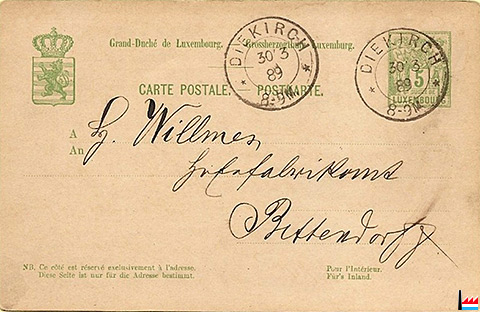 Grand-Duché de Luxembourg. Grossherzogthum Luxemburg.
DIEKIRCH
30 3
89
8-9M.
DIEKIRCH
30 3
89
8-9M.
5
LUXEMBOURG
CARTE POSTALE. POSTKARTE.
A
An
H. Willmes
Hefefabrikant
Bettendorf
NB. Ce côté est réservé exclusivement à l'adresse.
Diese Seite ist nur für die Adresse bestimmt.
Pour l'Intérieur.
Für's Inland.